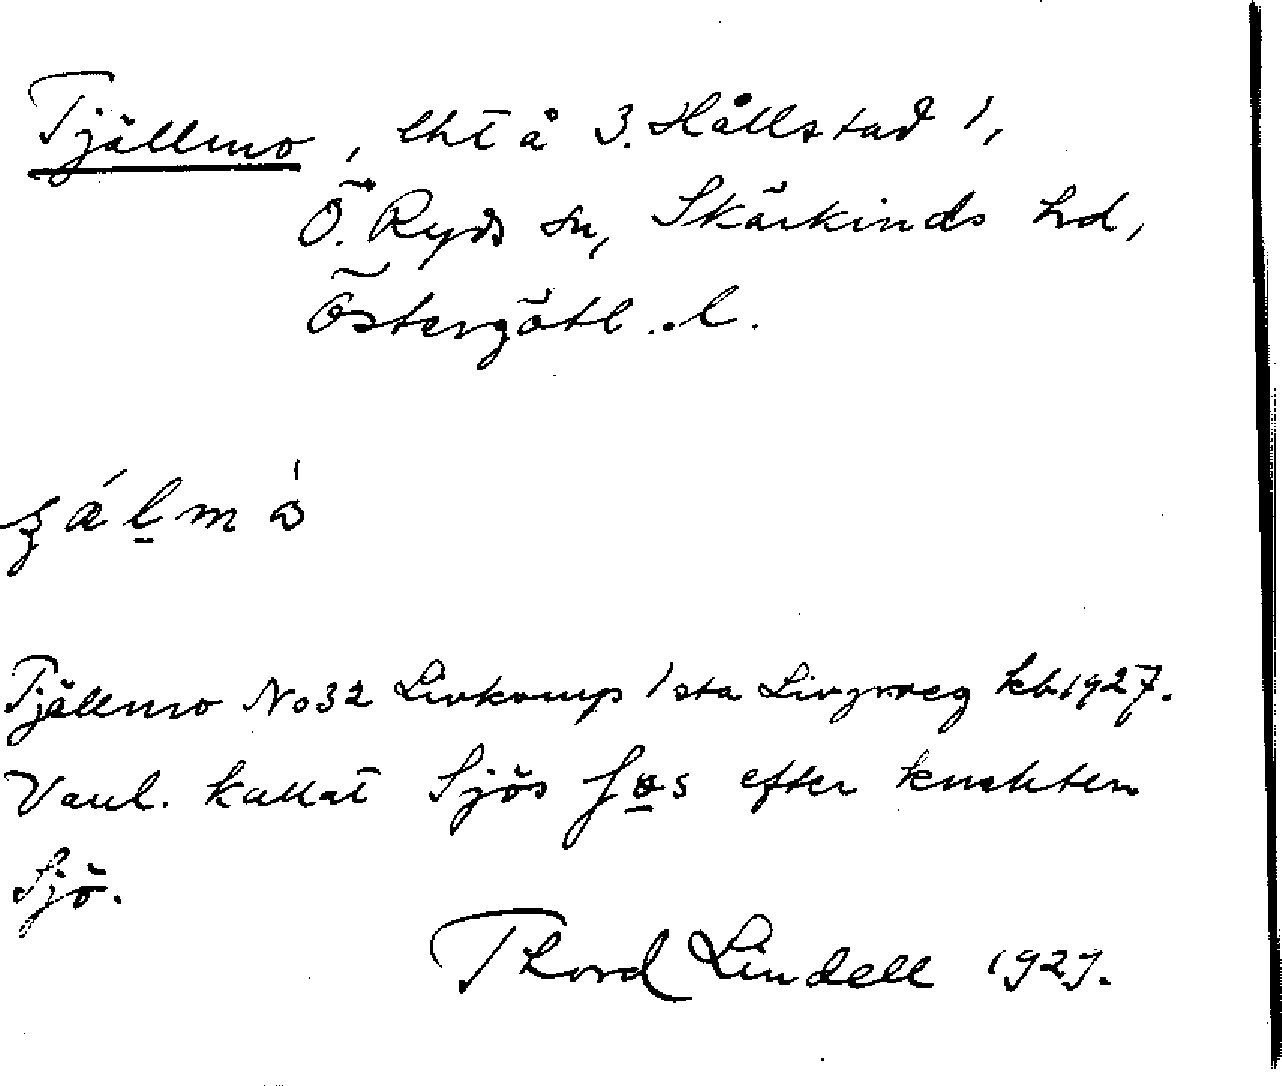 Tjällmo, lht å S. Hållstad 1,
Ö. Ryds sn, Skärkinds hd,
Östergötl. l.
Tjällmo No 32 Livkomp 1sta Livgrreg kb 1927.
Vanl. kallat Sjös efter knekten
Sjö.
Thord Lindell 1927.